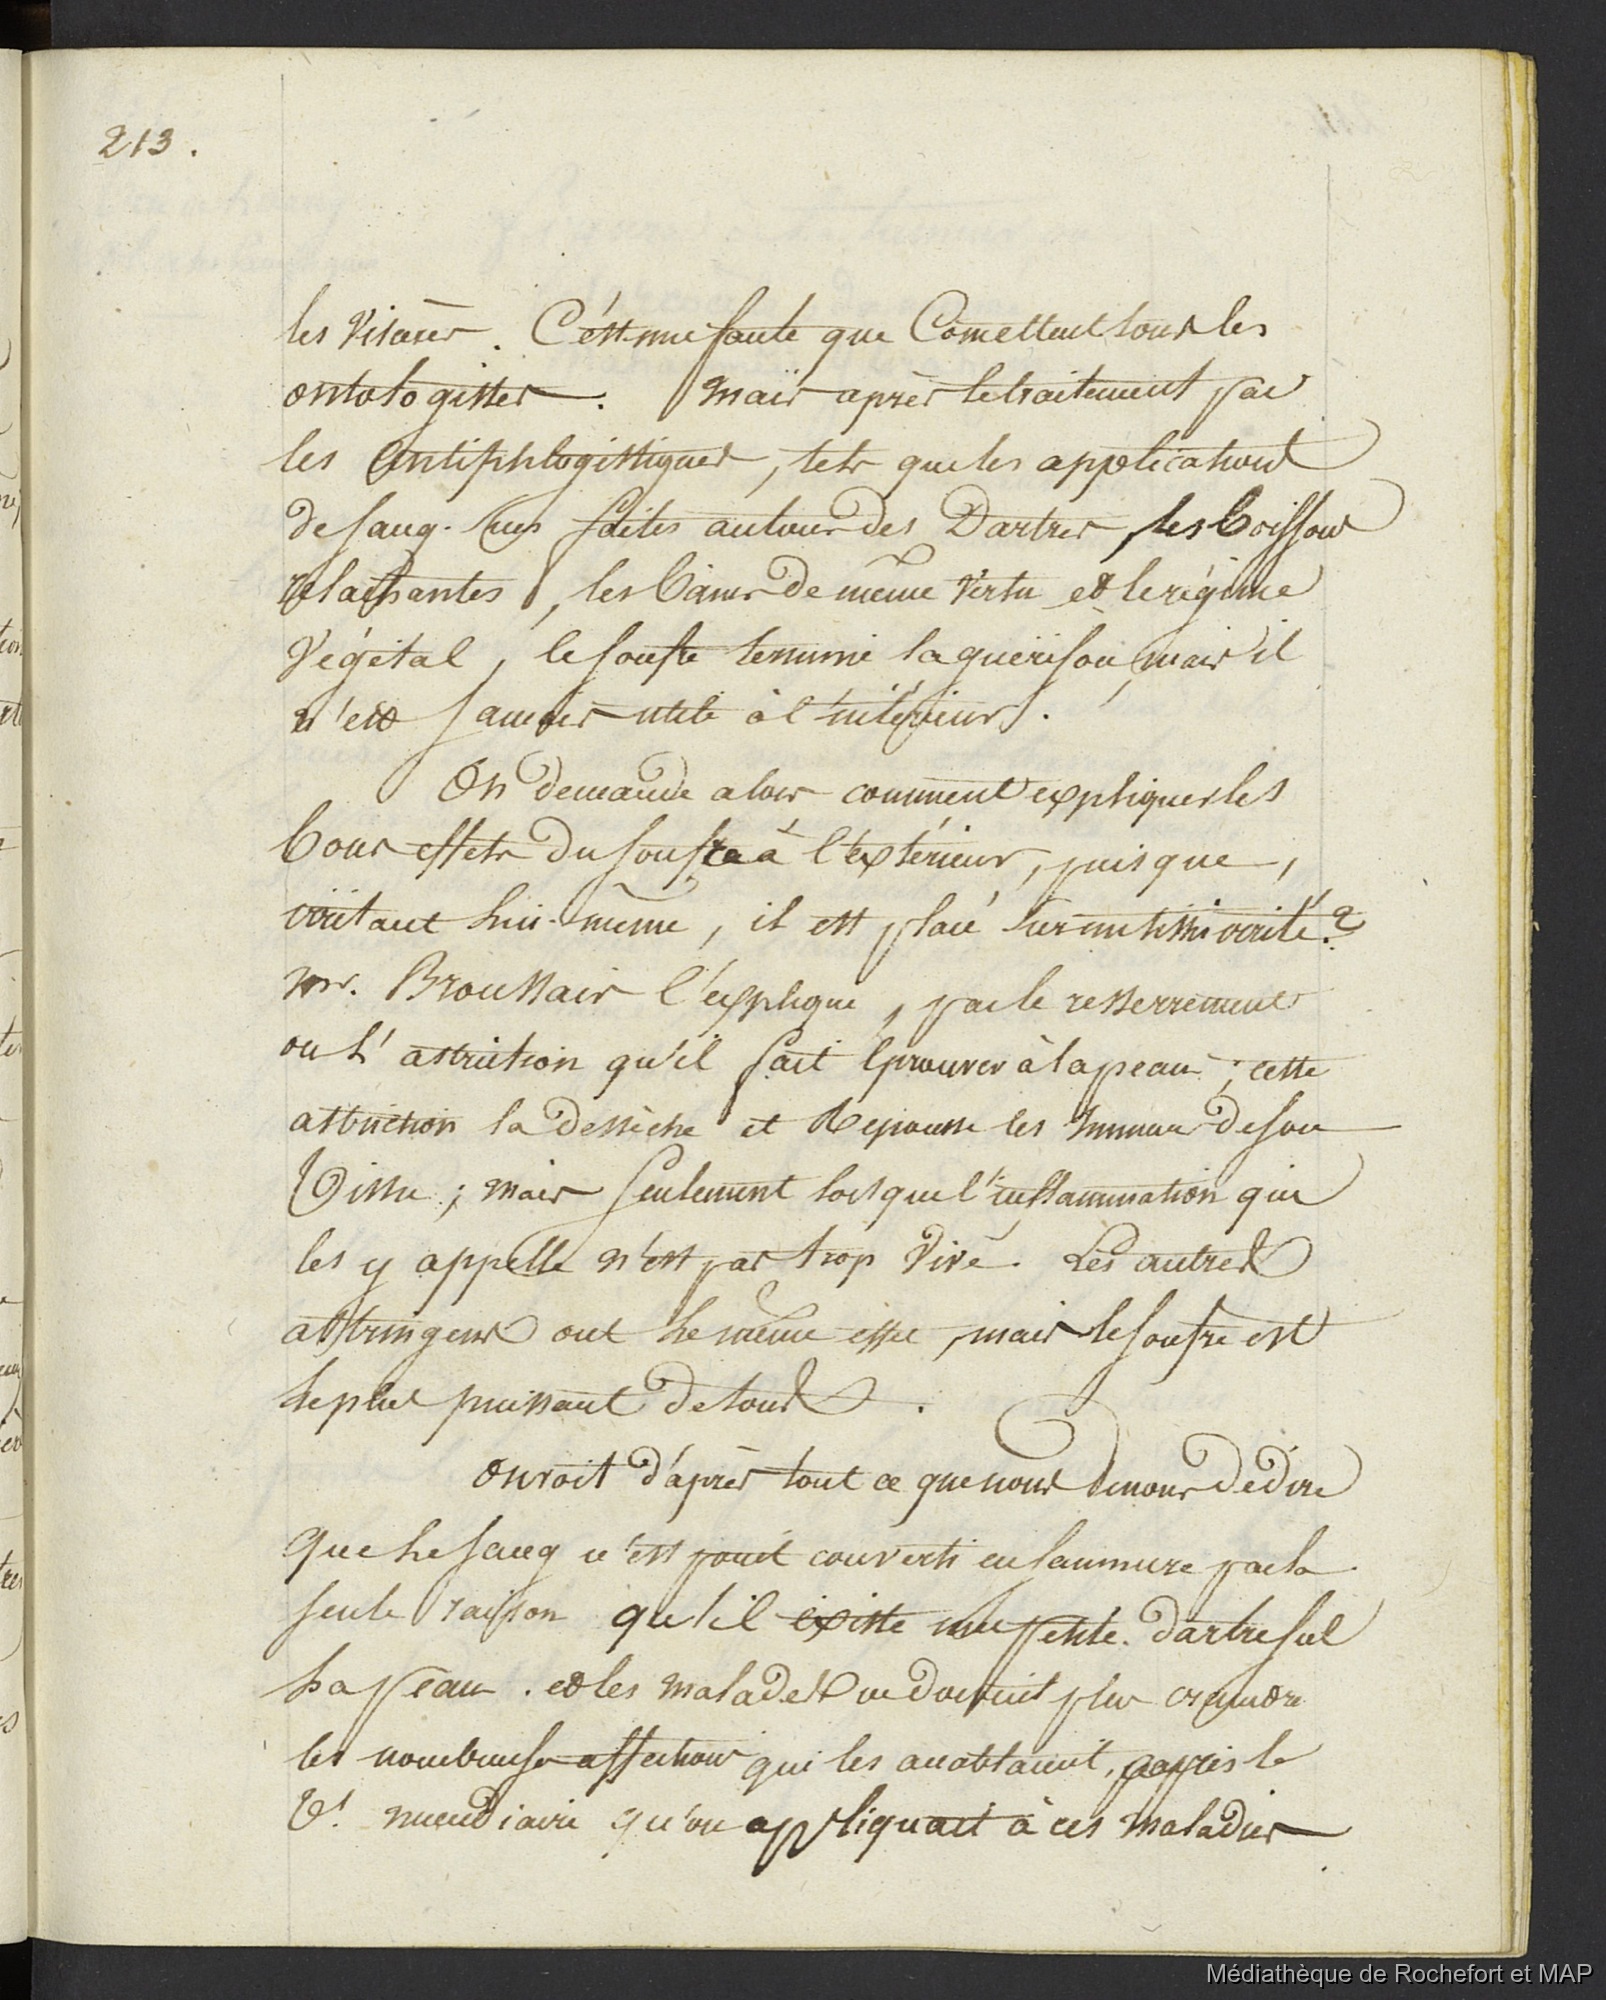 213.
les Viscères. C'est une faute que Comettent tous les
ontologistes. Mais après le traitement par
les antiphlogistiques, tels que les applications
de sang-sues faites autour des Dartres, les boissons
relachantes, les bains de même Vertu et le régime
Végétal, le soufre termine la guérison, mais il
n'est jamais utile à l'intérieur.
On demande alors comment expliquer les
bons effets du soufre à l'extérieur, puisque,
irritant lui-même, il est placé sur un tissu irrité?
Mr. Broussais l'explique, par le resserrement
ou l'astriction qu'il fait éprouver à la peau; cette
astriction la dessèche et Repousse les humeurs de son
Tissu; mais seulement lorsque l'inflammation qui
les y appelle n'est pas trop Vive. Les autres
astringens ont le même effet, mais le soufre est
le plus puissant de tous.
On voit d'après tout ce que nous venons de dire
Que le sang n'est point converti en saumure par la
seule raison qu'il existe une petite dartre sur
la peau. et les malades ne doivent plus craindre
les nombreuses affections qui les accablaient, après le
Tt. incendiaire qu'on appliquait à ces maladies
Médiathèque de Rochefort et MAP